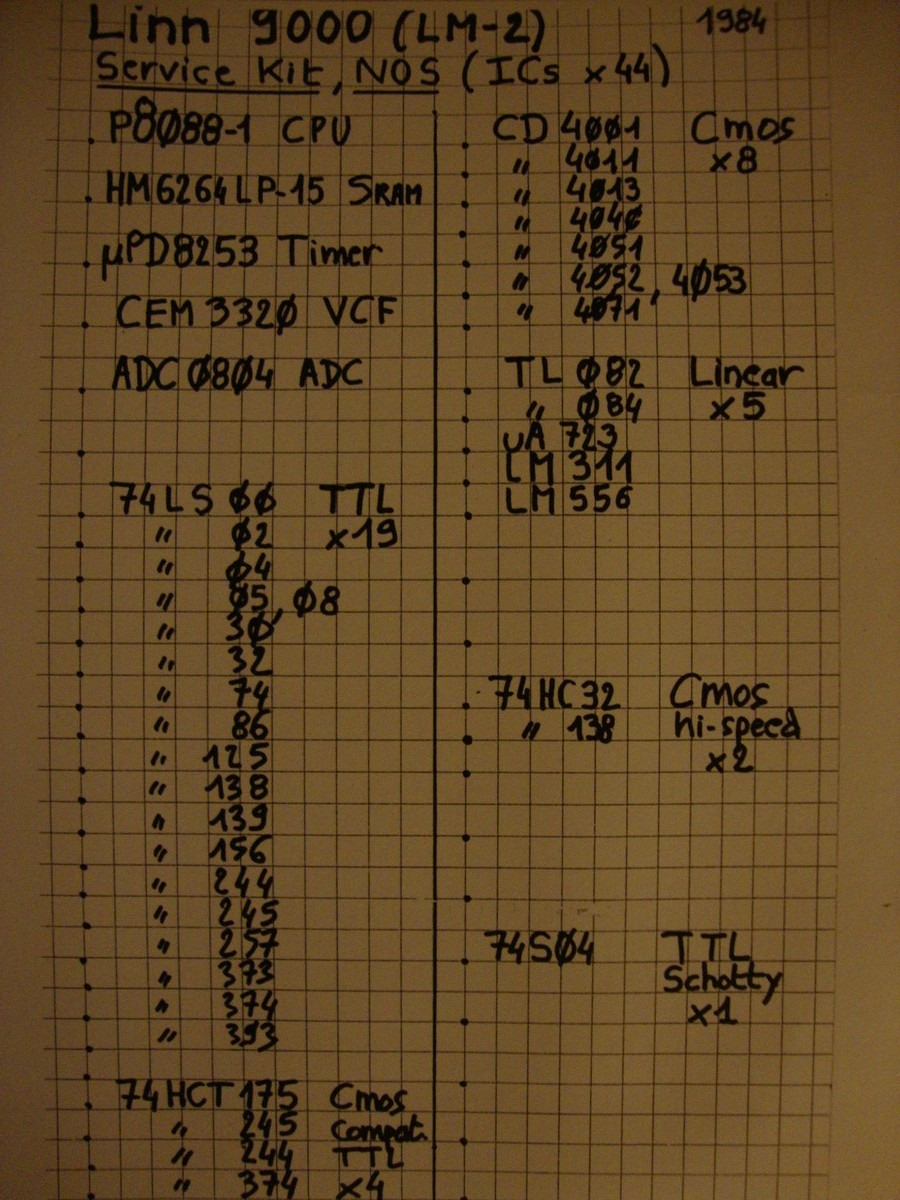 Linn 9000 (LM-2) 1984
Service Kit, NOS (ICs x44)
P8Ø88-1 CPU
HM6264LP-15 SRAM
µPD8253 Timer
CEM 332Ø VCF
ADC Ø8Ø4 ADC
74LS ØØ TTL
" Ø2 x19
" Ø4
" Ø5, Ø8
" 3Ø
" 32
" 74
" 86
" 125
" 138
" 139
" 156
" 244
" 245
" 257
" 373
" 374
" 393
74HCT 175 Cmos
" 245 Compat.
" 244 TTL
" 374 x4
CD 4ØØ1 Cmos
" 4Ø11 x8
" 4Ø13
" 4Ø4Ø
" 4Ø51
" 4Ø52, 4Ø53
" 4Ø71
TL Ø82 Linear
" Ø84 x5
uA 723
LM 311
LM 556
74HC32 Cmos
" 138 hi-speed
x2
74SØ4 TTL
Schotty
x1